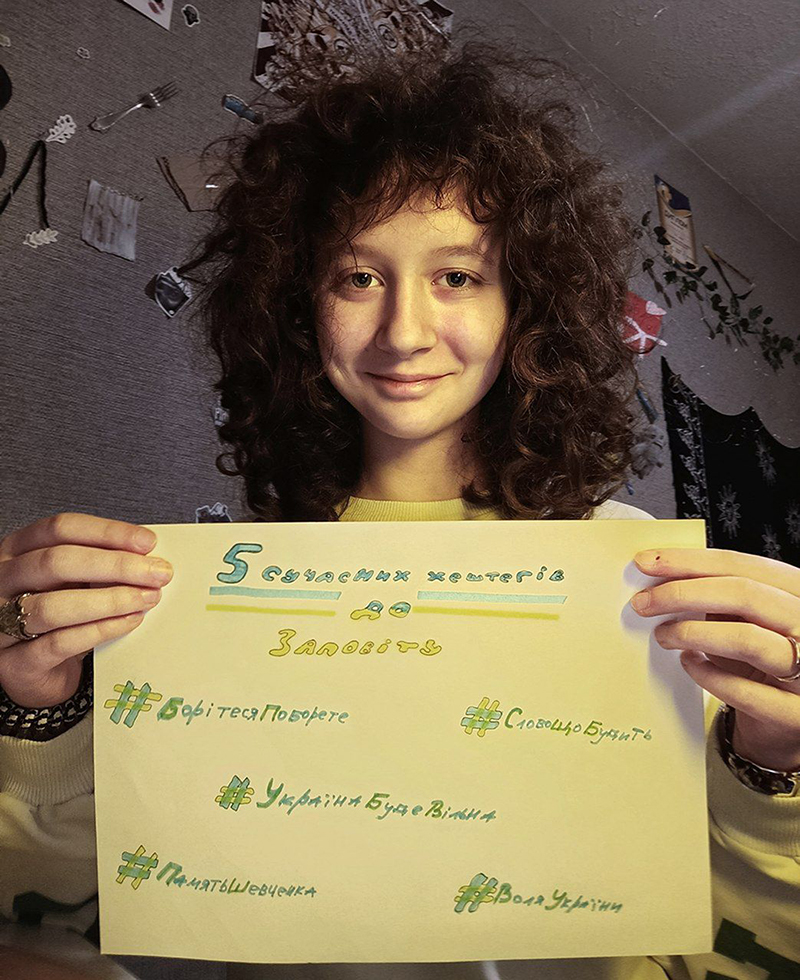 5 сучасних хештегів
до
Заповіту
#БорітесяПоборете
#СловоЩоБудить
#УкраїнаБудеВільна
#ПамятьШевченка
#ВоляУкраїни